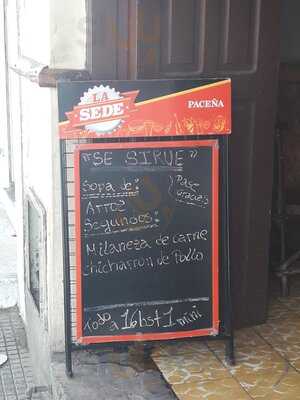 LA
SEDE
PACEÑA
"SE SIRVE"
Sopa de:
Pase
gracias
Arroz
Segundos:
Milaneza de carne
chicharron de Pollo
Todo a 16hst 1 mini